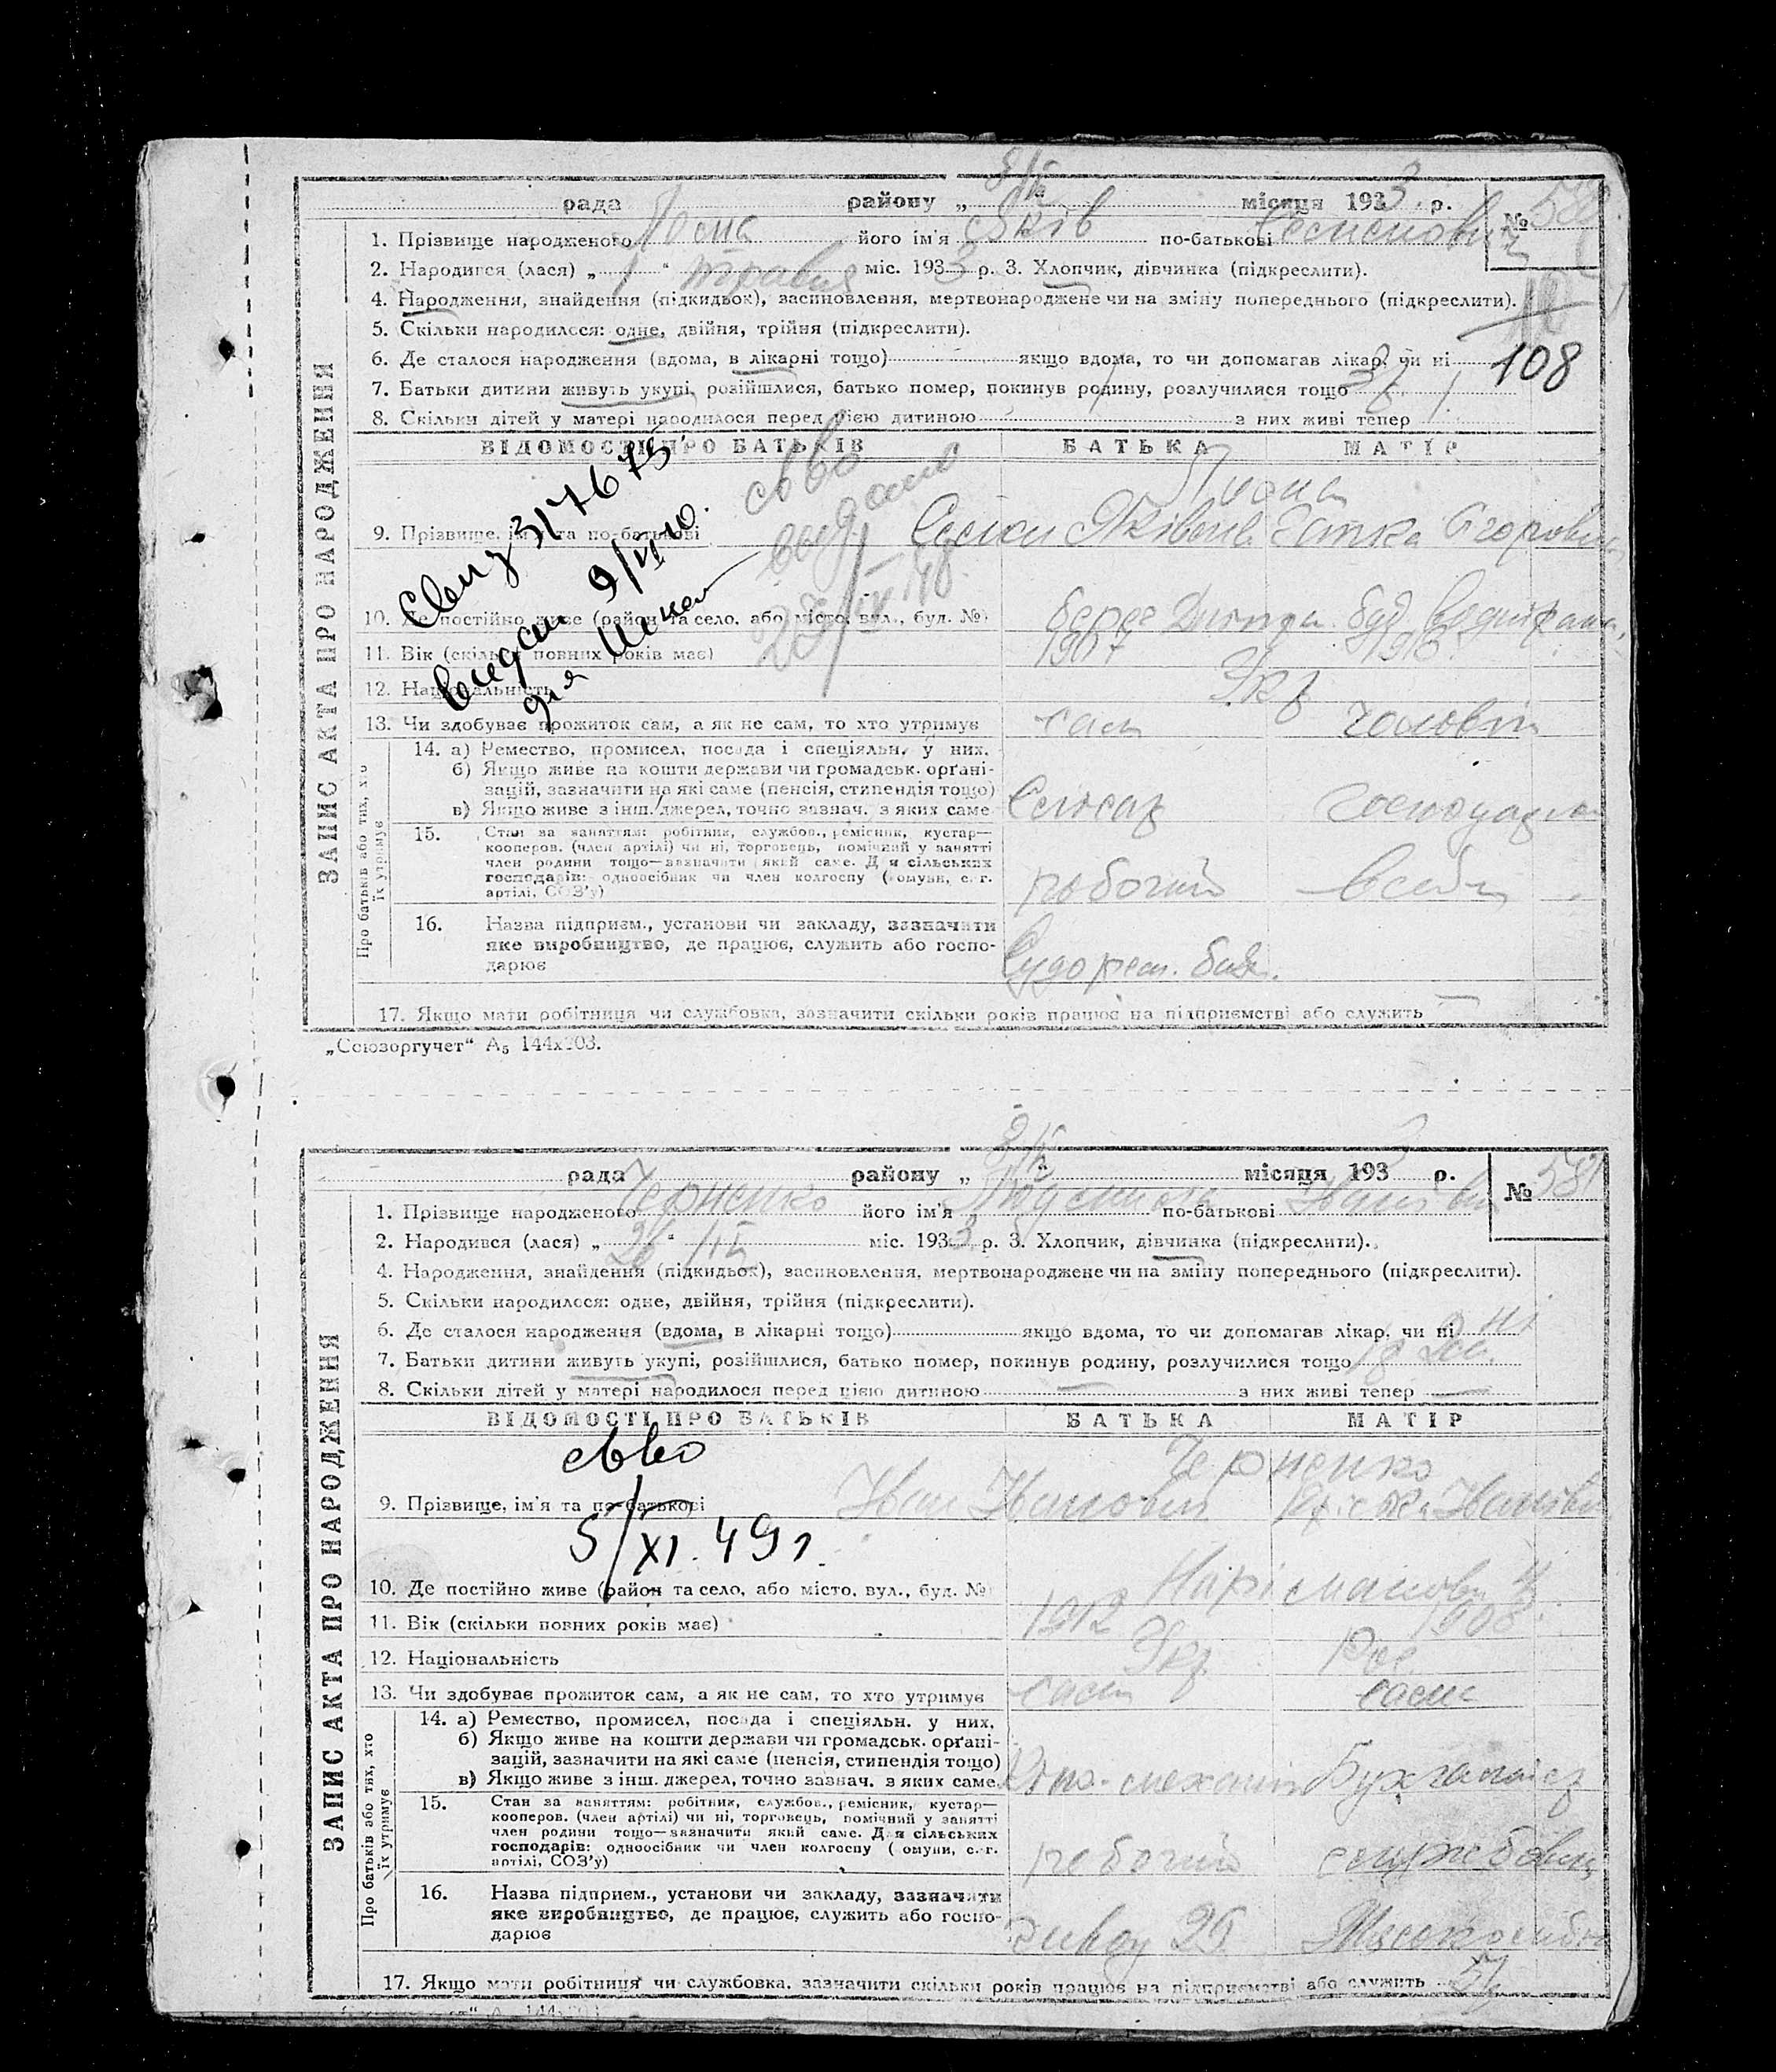 8/V
рада району „ місяця 1933 р. № 580
1. Прізвище народженого його ім'я Яків по-батькові Семенович
2. Народився (лася) „ 1 " травня міс. 1933 р. 3. Хлопчик, дівчинка (підкреслити).
4. Народження, знайдення (підкидьок), засиновлення, мертвонароджене чи на зміну попереднього (підкреслити).
5. Скільки народилося: одне, двійня, трійня (підкреслити).
6. Де сталося народження (вдома, в лікарні тощо) якщо вдома, то чи допомагав лікар, чи ні
108
7. Батьки дитини живуть укупі, розійшлися, батько помер, покинув родину, розлучилися тощо
8. Скільки дітей у матері народилося перед цією дитиною 1 з них живі тепер 1
ЗАПИС АКТА ПРО НАРОДЖЕННЯ
ВІДОМОСТІ ПРО БАТЬКІВ БАТЬКА МАТІР
9. Прізвище, ім'я та по-батькові Семен Яківич
10. Де постійно живе (район та село, або місто, вул., буд. №) берег Дніпра буд.
11. Вік (скільки повних років має) 1907 1910
12. Національність Укр
13. Чи здобуває прожиток сам, а як не сам, то хто утримує сам чоловік
Про батьків або тих, хто їх утримує
14. а) Ремество, промисел, посада і спеціяльн. у них.
б) Якщо живе на кошти держави чи громадськ. орґані-
зацій, зазначити на які саме (пенсія, стипендія тощо)
в) Якщо живе з інш. джерел, точно зазнач. з яких саме Слюсар
15. Стан за заняттям: робітник, службов., ремісник, кустар—
кооперов. (член артілі) чи ні, торговець, помічний у занятті
член родини тощо—зазначити який саме. Для сільських
господарів: одноосібник чи член колгоспу (комуни, с.-г.
артілі, СОЗ'у) робочий
16. Назва підприєм., установи чи закладу, зазначити
яке виробництво, де працює, служить або госпо-
дарює Судорем.
17. Якщо мати робітниця чи службовка, зазначити скільки років працює на підприємстві або служить —
Свид 317675
выдан 9/VI 40.
для
св во
выдано
„Союзоргучет“ А₅ 144х203.
8/V
рада району „ місяця 1933 р. № 581
1. Прізвище народженого Черненко його ім'я Людмила по-батькові Іванівна
2. Народився (лася) „ 26 " /IV міс. 1933 р. 3. Хлопчик, дівчинка (підкреслити).
4. Народження, знайдення (підкидьок), засиновлення, мертвонароджене чи на зміну попереднього (підкреслити).
5. Скільки народилося: одне, двійня, трійня (підкреслити).
6. Де сталося народження (вдома, в лікарні тощо) якщо вдома, то чи допомагав лікар, чи ні ні
7. Батьки дитини живуть укупі, розійшлися, батько помер, покинув родину, розлучилися тощо
8. Скільки дітей у матері народилося перед цією дитиною — з них живі тепер —
ЗАПИС АКТА ПРО НАРОДЖЕННЯ
ВІДОМОСТІ ПРО БАТЬКІВ БАТЬКА МАТІР
Черненко
9. Прізвище, ім'я та по-батькові Іван Іванович Іванівна
св во
5/XI. 49 г.
10. Де постійно живе (район та село, або місто, вул., буд. №)
11. Вік (скільки повних років має) 1912 1908
12. Національність Укр. Рос.
13. Чи здобуває прожиток сам, а як не сам, то хто утримує сам сама
Про батьків або тих, хто їх утримує
14. а) Ремество, промисел, посада і спеціяльн. у них.
б) Якщо живе на кошти держави чи громадськ. орґані-
зацій, зазначити на які саме (пенсія, стипендія тощо)
в) Якщо живе з інш. джерел, точно зазнач. з яких саме механік Бухгалтер
15. Стан за заняттям: робітник, службов., ремісник, кустар—
кооперов. (член артілі) чи ні, торговець, помічний у занятті
член родини тощо—зазначити який саме. Для сільських
господарів: одноосібник чи член колгоспу (комуни, с.-г.
артілі, СОЗ'у) робочий службовиц
16. Назва підприєм., установи чи закладу, зазначити
яке виробництво, де працює, служить або госпо-
дарює
17. Якщо мати робітниця чи службовка, зазначити скільки років працює на підприємстві або служить